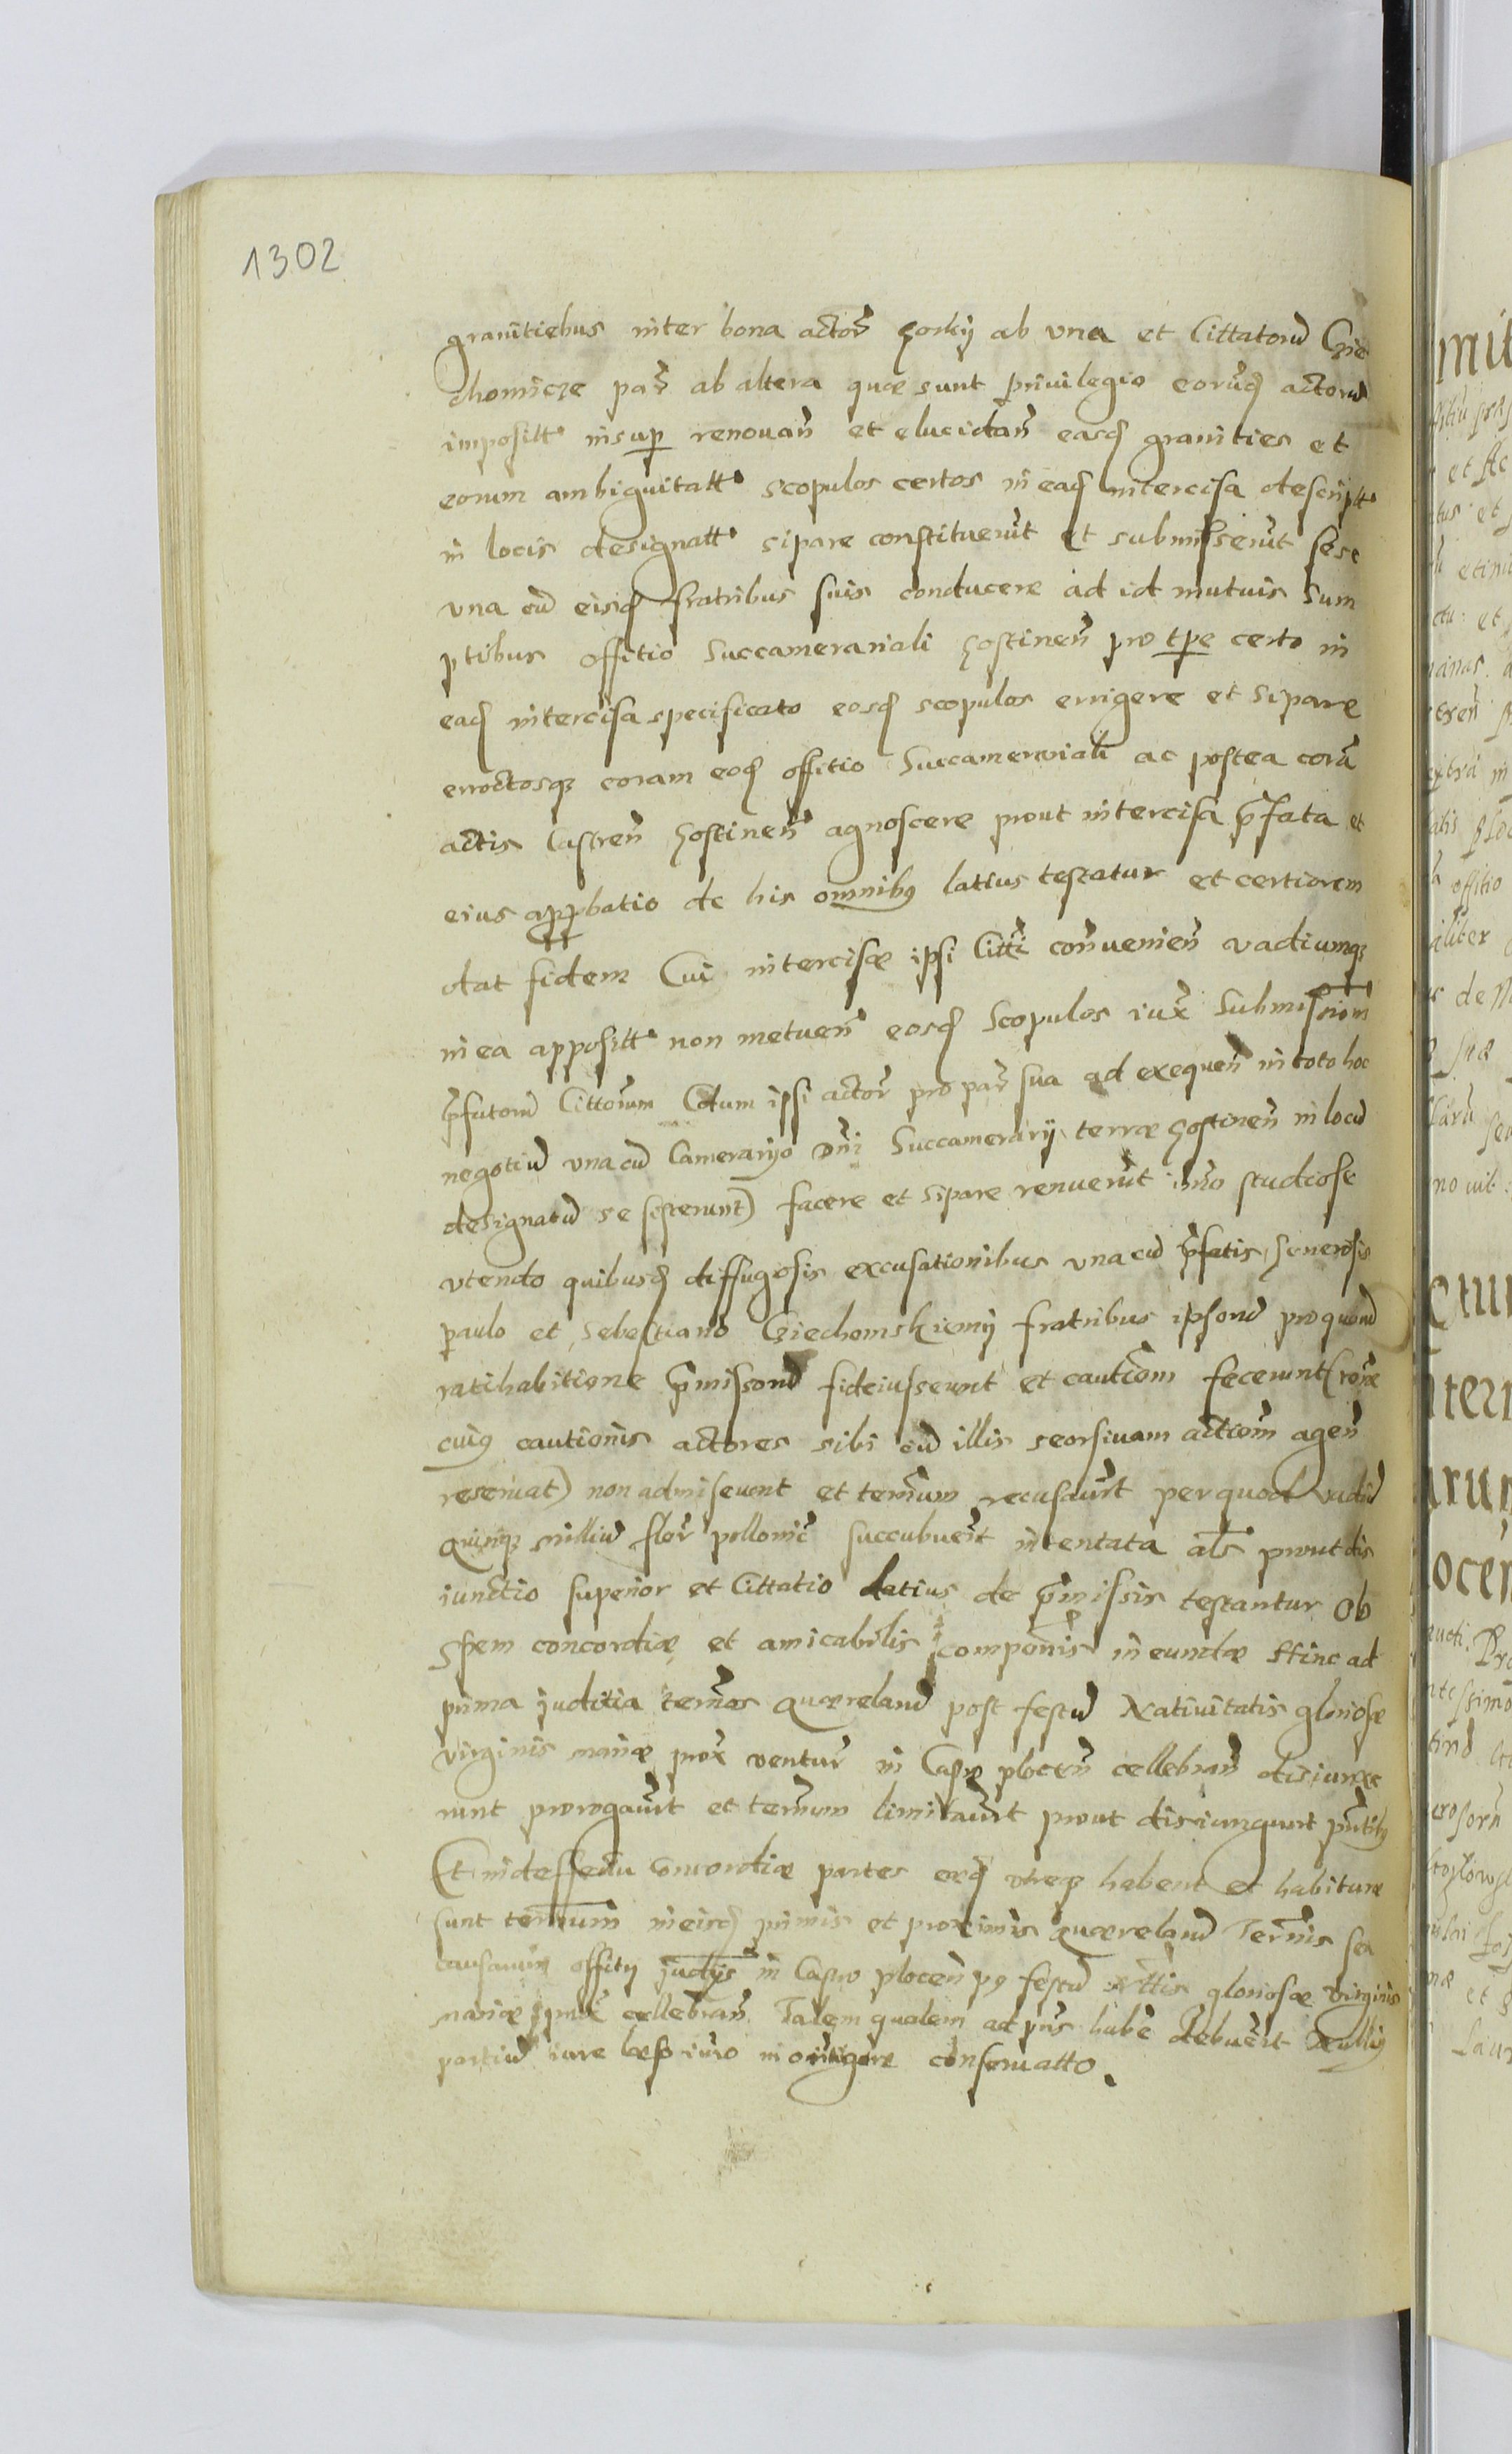 1302
granitiebus inter bona actor̃ Gorky ab vna et Cittatorũ Czie
chomicze par̃ ab altera quæ sunt privilegio eorũdẽ actorũ
imposittꝭ insuꝑ renouan̄ et elucidan̄ easdẽ granities et
eorum ambiguitattꝭ scopulos certos in eadẽ intercisa descripttꝭ
in locis designattꝭ sipare constituerũt et submiserũt sese
vna cũ eisdẽ fratribus suis conducere ad id mutuis Sum
ptibus offitio Succamerariali Gostinen̄ pro tꝑe certo in
eadẽ intercisa specificato eosdẽ scopulos errigere et sipare
errectosqꝫ coram eodẽ offitio Succameriali ac postea corã
actis Castren̄ Gostinen̄ agnoscere prout intercisa p̃fata et
eius approbatio de his omnibꝰ latius testatur et certiorem
dat fidem Cui intercisæ ipsi Citti conuenien̄ vadiumqꝫ
in ea apposittꝭ non metuen̄ eosdẽ Scopulos iux̃ Submissiom̃
p̃fatorũ Cittorum Cum ipsi actor̃ pro par̃ sua ad exequen̄ in toto hoc
negotiũ vna cũ Camerarijo Dñi Succamerarij terræ Gostinen̄ in locũ
designatũ se sisterunt) facere et sipare renuerũt imo studiose
vtendo quibusdẽ diffugosis excusationibus vna cũ p̃fatis Generosis
paulo et Sebestiano Cziechomskiemy fratribus ipsorũ pro quorũ
ratihabitione p̃missorũ fideiusserunt et cautiom̃ fecerunt (rõne
cuiꝰ cautionis actores sibi cũ illis seorsiuam actiom̃ agen̄
reseruat) non admiserunt et termum̃ recusauer̃t per quod vadiũ
Quinqꝫ milliũ flor̃ pollonic̃ succubuer̃t intentata als̃ prout dis
iunctio superior et Cittatio latius de p̃missis testantur Ob
Spem concordiæ et amicabilis componis̃ ineundæ Hinc ad
prima juditia termos̃ Quærelarũ post festũ Natiuitatis gloriosæ
virginis mariæ prox̃ ventur̃ in Castro plocen̄ cellebran̄ disiunxe
runt prorogauer̃t et termum̃ limitauer̃t prout disiungunt pñtibꝰ
Et in deffectu Concordiæ partes eædẽ vtræqꝫ habent et habituræ
sunt termum̃ in eisdẽ primis et proximis Quærelarũ Termis̃ seu
causarum offitij judijs̃ in Castro plocen̄ pꝰ festũ Nttis gloriosæ virginis
mariæ prox̃ cellebran̄ Talem qualem ad pñs habẽ debuer̃t Nulliꝰ
partiũ iure læso imo in o integre conseruatto.